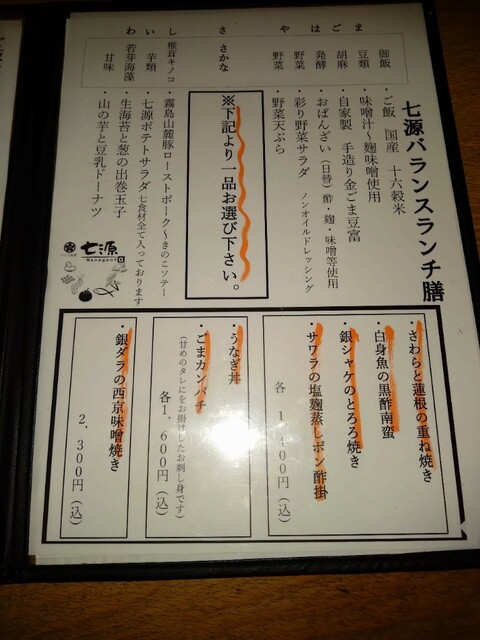 七源バランスランチ膳
ま
ご
は
や
さ
し
い
わ
御飯 ・ご飯 国産 十六穀米
豆類 ・味噌汁～麹味噌使用
胡麻 ・自家製 手造り金ごま豆富
発酵 ・おばんざい（日替）酢・麹・味噌等使用
野菜 ・彩り野菜サラダ ノンオイルドレッシング
野菜 ・野菜天ぷら
さかな
※下記より一品お選び下さい。
椎茸キノコ ・霧島山麓豚ローストポーク～きのこソテー
芋類 ・七源ポテトサラダ 七食材全て入っております
若芽海藻 ・生海苔と葱の出巻玉子
甘味 ・山の芋と豆乳ドーナツ
七源
・さわらと蓮根の重ね焼き
・白身魚の黒酢南蛮
・銀シャケのとろろ焼き
・サワラの塩麹蒸しポン酢掛
各 1,400円（込）
・うなぎ丼
・ごまカンパチ
（甘めのタレにをお掛けしたお刺し身です）
各1,600円（込）
・銀ダラの西京味噌焼き
2,300円（込）